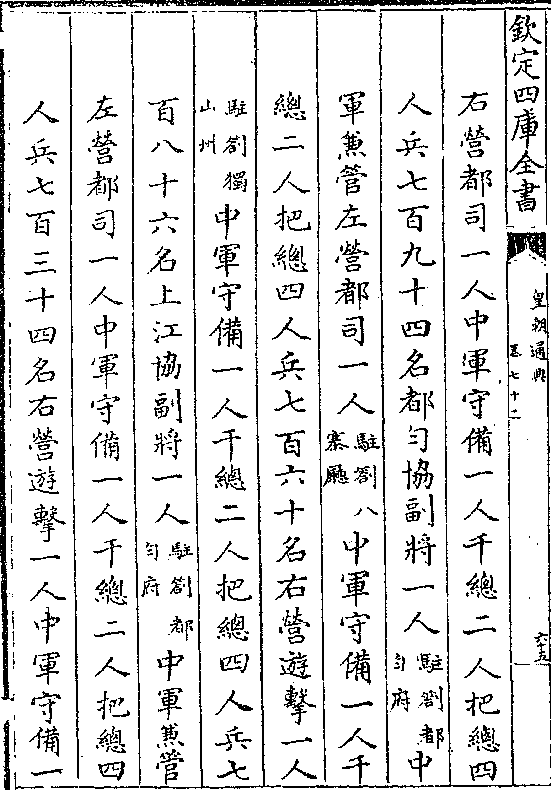 欽定四庫全書
皇朝通典
卷七十二
六十五
右營都司一人中軍守備一人千總二人把總四
人兵七百九十四名都勻協副將一人駐劄都勻府中
軍兼管左營都司一人駐劄八寨廳中軍守備一人千
總二人把總四人兵七百六十名右營遊擊一人
駐劄獨山州中軍守備一人千總二人把總四人兵七
百八十六名上江協副將一人駐劄都勻府中軍兼管
左營都司一人中軍守備一人千總二人把總四
人兵七百三十四名右營遊擊一人中軍守備一